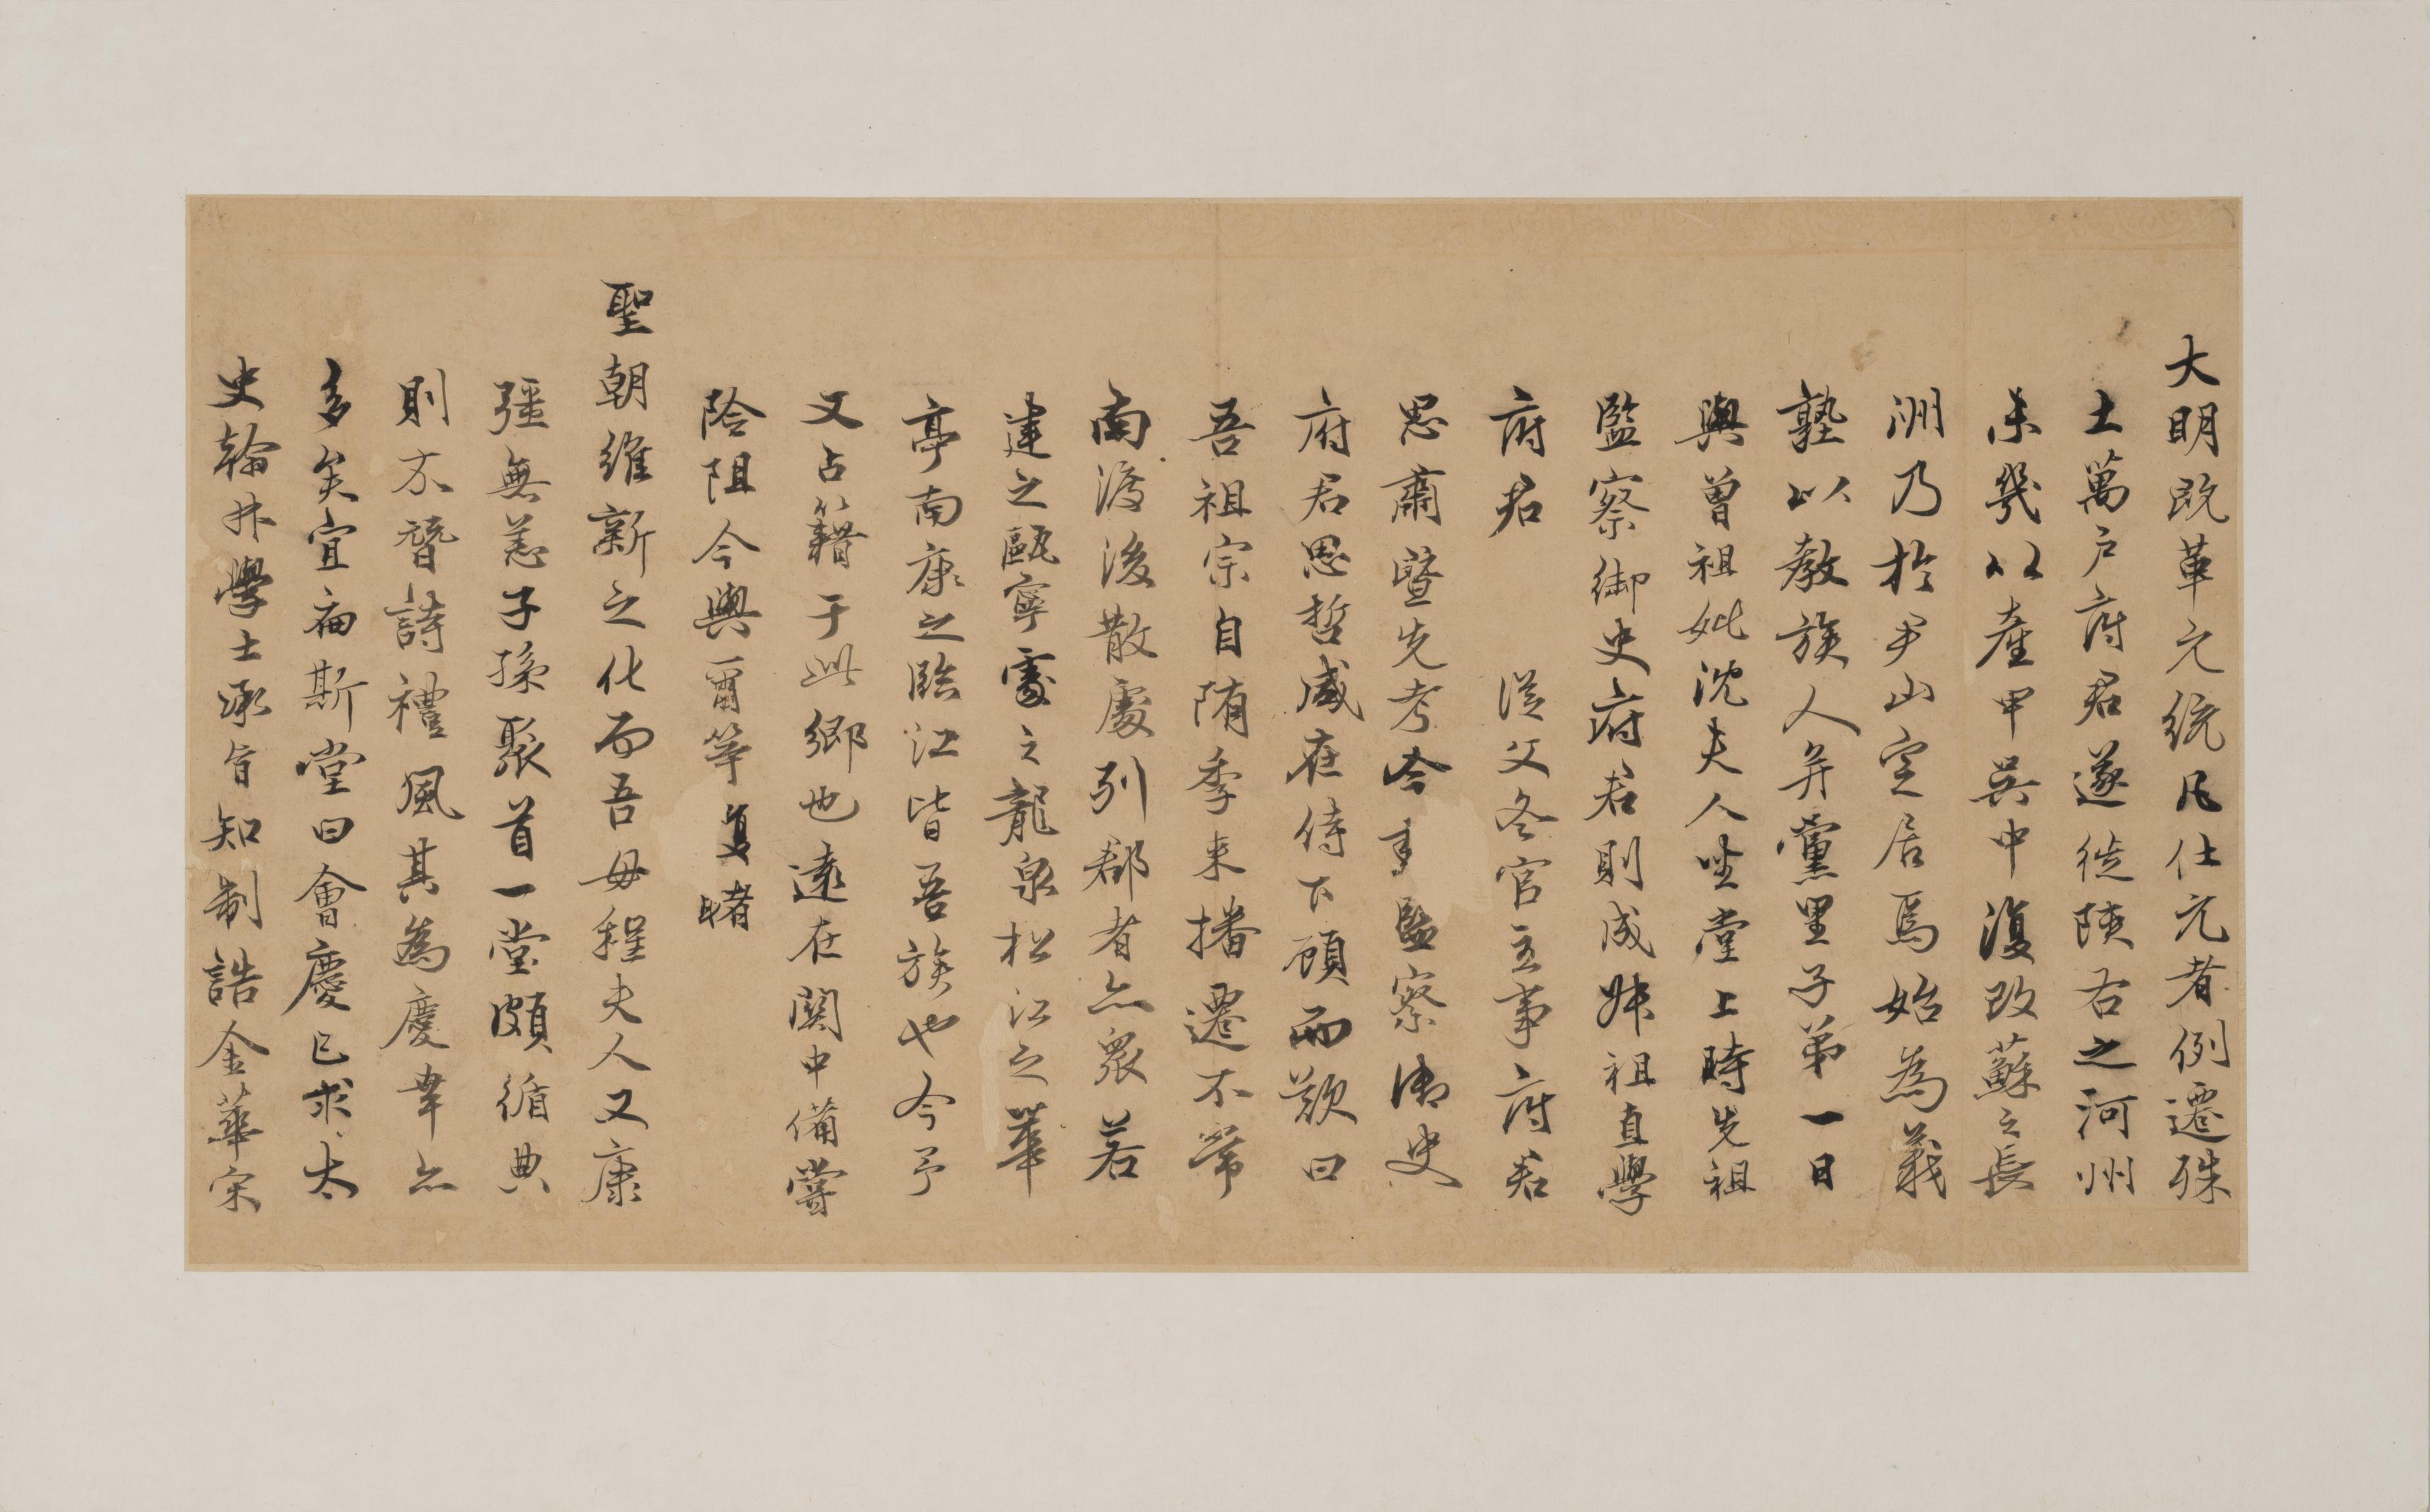 大明既革元統凡仕元者例遷殊
土萬戶府君遂徙陝右之河州
未幾以產甲吳中復改蘇之長
洲乃於尹山定居焉始為義
塾以教族人并黨里子弟一日
與曾祖妣沈夫人坐堂上時先祖
監察御史府君則成妹祖直學
府君 從父冬官主事府君
思肅暨先考今贈監察御史
府君思哲咸在侍下顧而歎曰
吾祖宗自隋季來播遷不常
南渡後散處列郡者亦眾若
建之甌寧處之龍泉松江之華
亭南康之臨江皆吾族也今予
又占籍于此鄉也遠在關中備嘗
險阻今與爾等复睹
聖朝維新之化而吾母程夫人又康
彊無恙子孫聚首一堂頗循典
則不替詩禮風其為慶幸亦
多矣宜扁斯堂曰會慶已求太
史翰林學士承旨知制誥金華宋